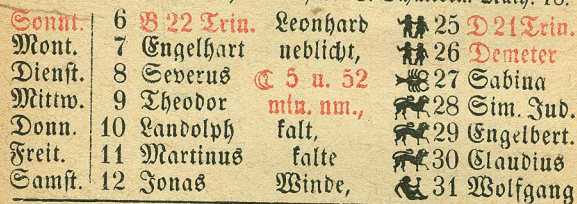 Sonnt. 6 B 22 Trin. Leonhard 25 D 21 Trin.
Mont. 7 Engelhart neblicht, 26 Demeter
Dienst. 8 Severus ☾ 5 u. 52 27 Sabina
Mittw. 9 Theodor min. nm., 28 Sim. Jud.
Donn. 10 Landolph kalt, 29 Engelbert.
Freit. 11 Martinus kalte 30 Claudius
Samst. 12 Jonas Winde, 31 Wolfgang